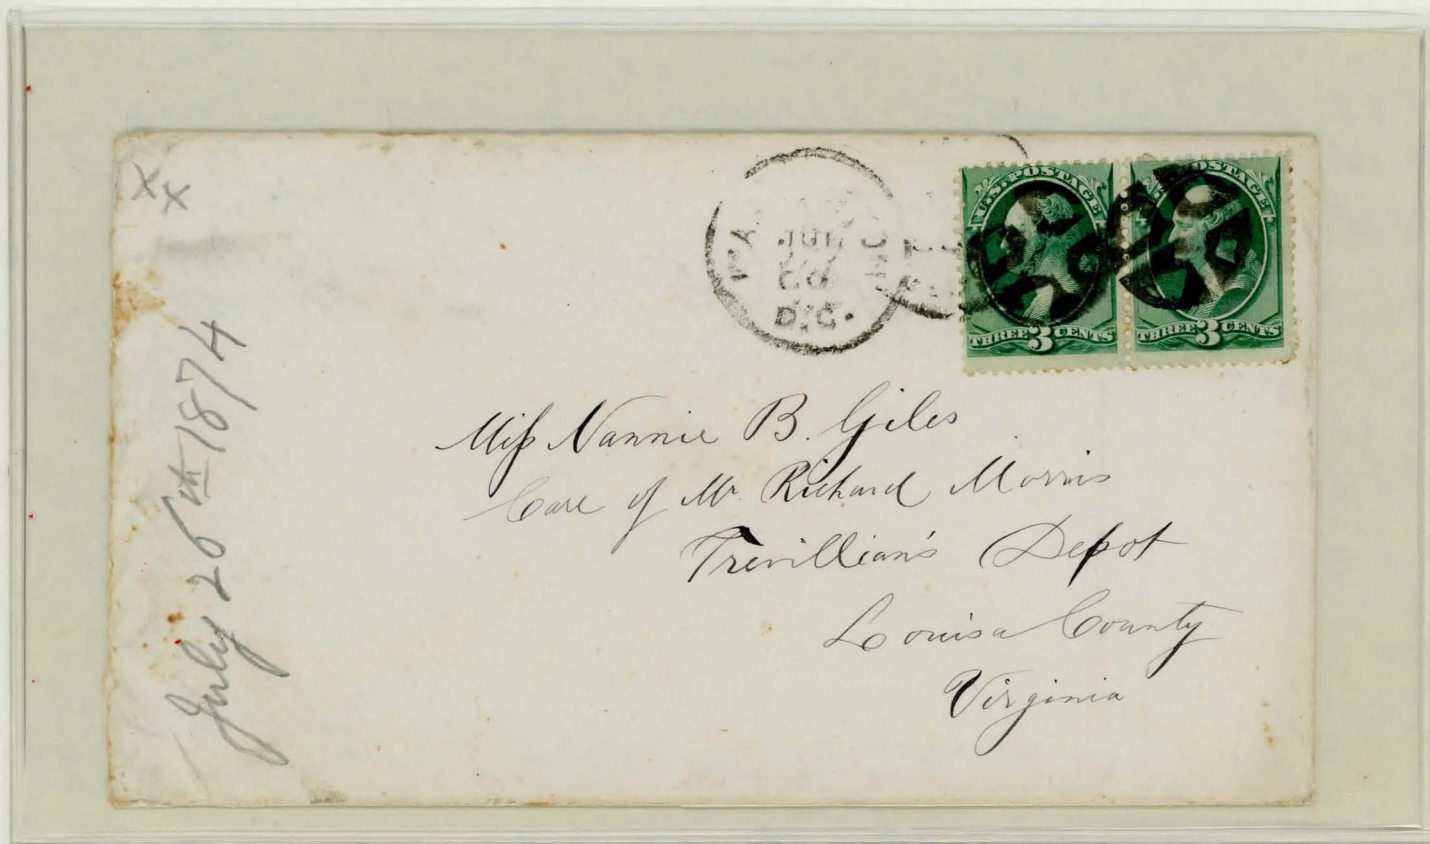 x x
July 26th 1874
JUL
D.C.
U.S. POSTAGE
THREE 3 CENTS
POSTAGE
THREE 3 CENTS
Miſs Nannie B. Giles
Care of Mr. Richard Morris
Trevillian's Depot
Louisa County
Virginia